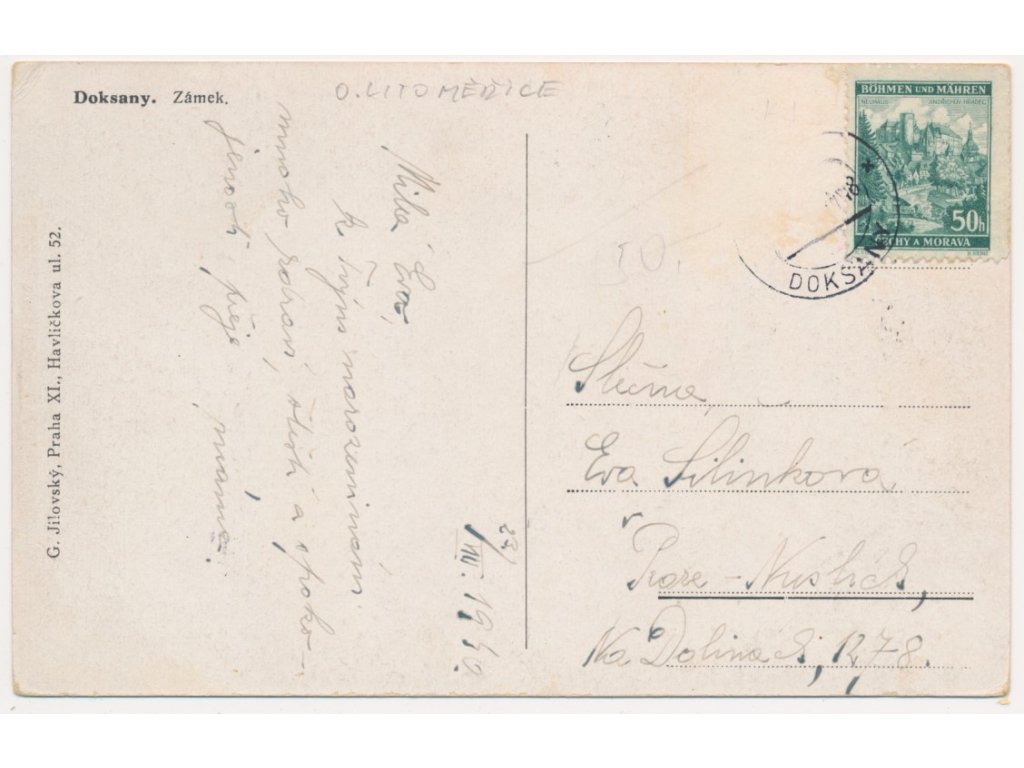 Doksany. Zámek.
O. LITOMĚŘICE
G. Jilovský, Praha XI., Havlíčkova ul. 52.
Milá Evo,
k Tvým narozeninám
mnoho zdraví, štěstí a spoko-
jenosti přeje máma.
23/VII. 1940.
BÖHMEN UND MÄHREN
NEUHAUS JINDŘICHŮV HRADEC
50h
ČECHY A MORAVA
DOKSANY
Slečna
Eva Silinkova
v
Praze - Nuslích,
Na Dolinách, 1278.